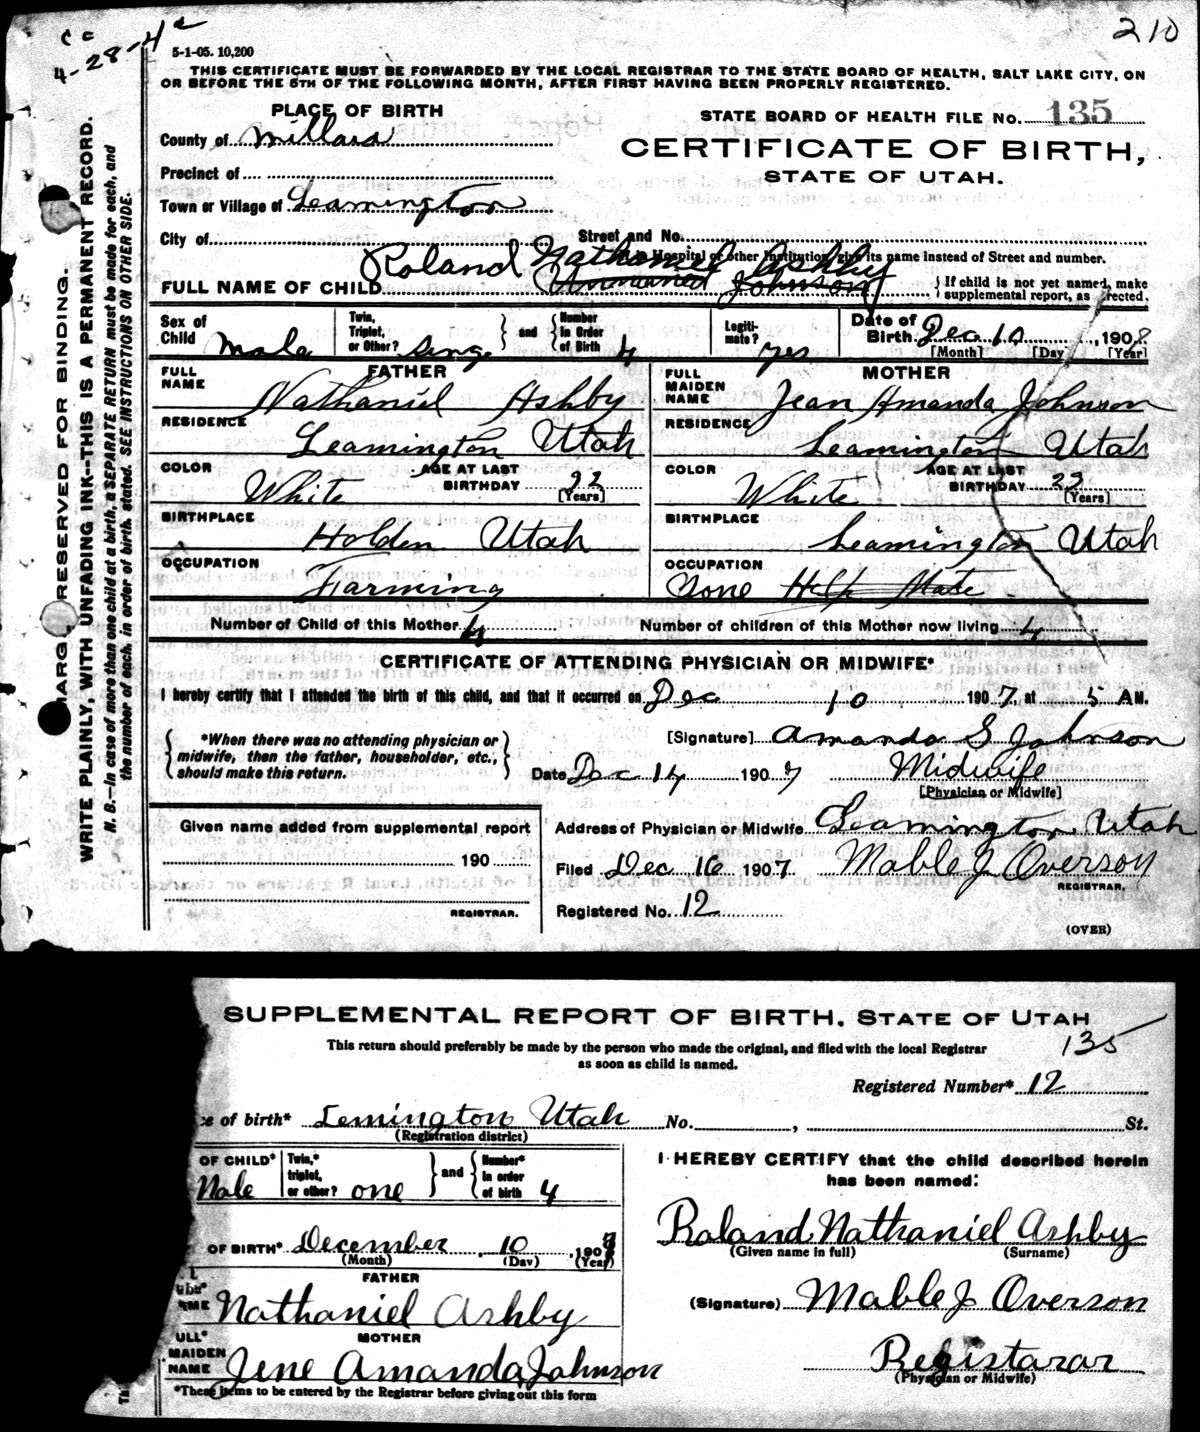 210
4-28-4
5-1-05. 10,200
THIS CERTIFICATE MUST BE FORWARDED BY THE LOCAL REGISTRAR TO THE STATE BOARD OF HEALTH, SALT LAKE CITY, ON
OR BEFORE THE 5TH OF THE FOLLOWING MONTH, AFTER FIRST HAVING BEEN PROPERLY REGISTERED.
MARG RESERVED FOR BINDING.
WRITE PLAINLY, WITH UNFADING INK--THIS IS A PERMANENT RECORD.
N. B.—In case of more than one child at a birth, a SEPARATE RETURN must be made for each, and
the number of each, in order of birth, stated. SEE INSTRUCTIONS ON OTHER SIDE.
PLACE OF BIRTH
STATE BOARD OF HEALTH FILE No. 135
County of Millard
CERTIFICATE OF BIRTH,
STATE OF UTAH.
Precinct of
Town or Village of Leamington
City of Street and No.
If in Hospital or other Institution, give its name instead of Street and number.
Roland Nathaniel Ashby
FULL NAME OF CHILD Unnamed Johnson
If child is not yet named, make
supplemental report, as directed.
Sex of Child Male
Twin, Triplet, or Other? Sing. and Number in Order of Birth 4
Legitimate? yes
Date of Birth Dec 10, 1908
[Month] [Day] [Year]
FATHER
FULL NAME Nathaniel Ashby
RESIDENCE Leamington Utah
COLOR White AGE AT LAST BIRTHDAY 32 [Years]
BIRTHPLACE Holden Utah
OCCUPATION Farming
MOTHER
FULL MAIDEN NAME Jean Amanda Johnson
RESIDENCE Leamington Utah
COLOR White AGE AT LAST BIRTHDAY 23 [Years]
BIRTHPLACE Leamington Utah
OCCUPATION None Help Mate
Number of Child of this Mother 4 Number of children of this Mother now living 4
CERTIFICATE OF ATTENDING PHYSICIAN OR MIDWIFE*
I hereby certify that I attended the birth of this child, and that it occurred on Dec 10 1907, at 5 AM.
*When there was no attending physician or
midwife, then the father, householder, etc.,
should make this return.
[Signature] Amanda S Johnson
Date Dec 14 1907 Midwife
[Physician or Midwife]
Given name added from supplemental report
190
REGISTRAR.
Address of Physician or Midwife Leamington Utah
Filed Dec 16 1907 Mable J Overson
REGISTRAR.
Registered No. 12
(OVER)
SUPPLEMENTAL REPORT OF BIRTH. STATE OF UTAH
135
This return should preferably be made by the person who made the original, and filed with the local Registrar
as soon as child is named.
Registered Number* 12
e of birth* Lemington Utah No. , St.
(Registration district)
OF CHILD* Male
Twin,* triplet, or other? one and Number* in order of birth 4
OF BIRTH* December, 10, 190
(Month) (Day) (Year)
FATHER
Nathaniel Ashby
MOTHER
ULL* MAIDEN NAME Jene Amanda Johnson
*These items to be entered by the Registrar before giving out this form
I HEREBY CERTIFY that the child described herein
has been named:
Roland Nathaniel Ashby
(Given name in full) (Surname)
(Signature) Mable J Overson
Registarar
(Physician or Midwife)